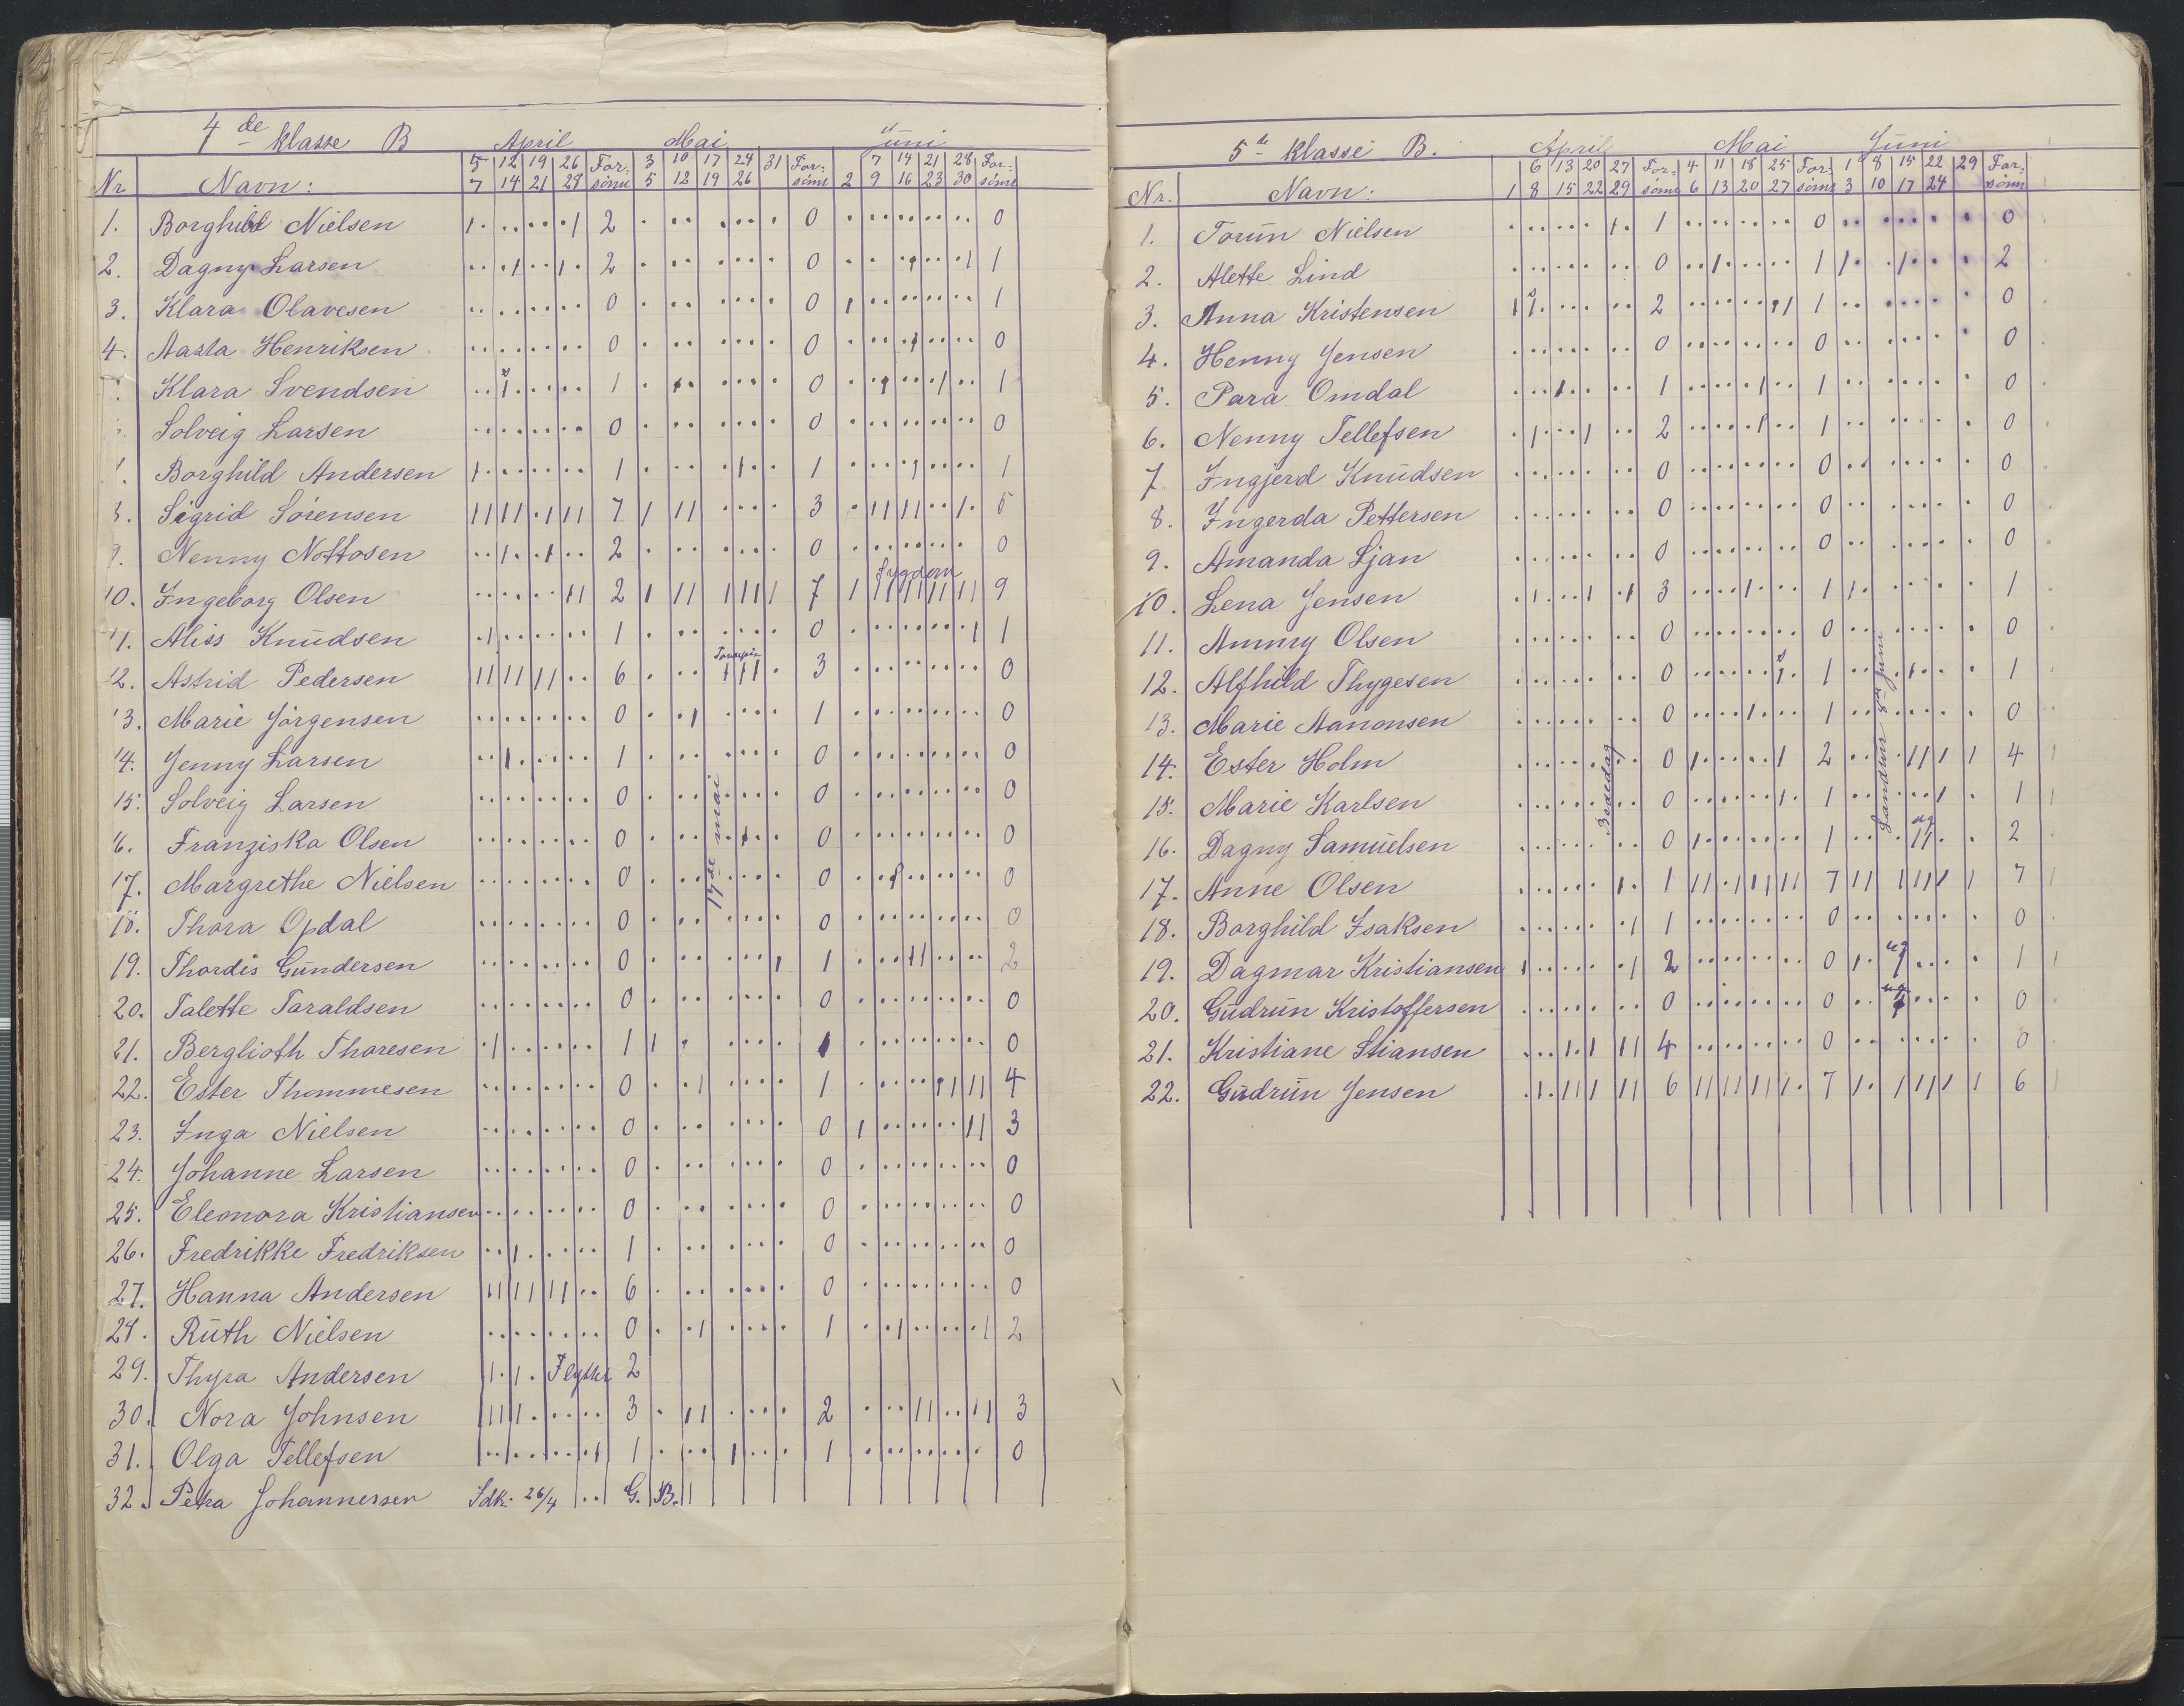 4 de klasse B April Mai Juni
5 12 19 26 For- 3 10 17 24 31 For- 7 14 21 28 For-
Nr. Navn: 7 14 21 28 sömt 5 12 19 26 sömt 2 9 16 23 30 sömt
1. Borghild Nielsen 2 0 0
2. Dagny Larsen 2 0 1
3. Klara Olavesen 0 0 1
4. Aasta Henriksen 0 0 0
Klara Svendsen 1 0 1
Solveig Larsen 0 0 0
Borghild Andersen 1 1 1
8. Sigrid Sörensen 7 3 5
9. Nenny Nottosen 2 0 0
10. Ingeborg Olsen 2 7 sygdom 9
11. Aliss Knudsen 1 0 1
12. Astrid Pedersen 6 3 0
13. Marie Jörgensen 0 1 0
14. Jenny Larsen 1 0 0
15. Solveig Larsen 0 0 0
16. Franziska Olsen 0 0 0
17. Margrethe Nielsen 0 17de mai 0 0
18. Thora Opdal 0 0 0
19. Thordis Gundersen 0 1 2
20. Talette Taraldsen 0 0 0
21. Berglioth Thoresen 1 1 0
22. Ester Thommesen 0 1 4
23. Inga Nielsen 0 0 3
24. Johanne Larsen 0 0 0
25. Eleonora Kristiansen 0 0 0
26. Fredrikke Fredriksen 1 0 0
27. Hanna Andersen 6 0 0
28. Ruth Nielsen 0 1 2
29. Thyra Andersen Flyttet 2
30. Nora Johnsen 3 2 3
31. Olga Tellefsen 1 1 0
32. Petra Johannersen Idk. 26/4 G. B.
5te klasse B. April Mai Juni
6 13 20 27 For- 4 11 18 25 For- 1 8 15 22 29 For-
Nr. Navn: 1 8 15 22 29 sömt 6 13 20 27 sömt 3 10 17 24 sömt
1. Torun Nielsen 1 0 0
2. Alette Lind 0 1 2
3. Anna Kristensen 2 1 0
4. Henny Jensen 0 0 0
5. Para Omdal 1 1 0
6. Nenny Tellefsen 2 1 0
7 Ingjerd Knudsen 0 0 0
8. Ingerda Pettersen 0 0 0
9. Amanda Ljan 0 0 0
10. Lena Jensen 3 1 1
11. Ammy Olsen 0 0 0
12. Alfhild Thygesen 0 1 1
13. Marie Aanonsen 0 1 0
14. Ester Holm 0 2 4
15. Marie Karlsen Bededag 0 1 Landtur 8de juni 1
16. Dagny Samuelsen 0 1 2
17. Anne Olsen 1 7 7
18. Borghild Isaksen 1 0 0
19. Dagmar Kristiansen 2 0 1
20. Gudrun Kristoffersen 0 0 0
21. Kristiane Stiansen 4 0 0
22. Gudrun Jensen 6 7 6